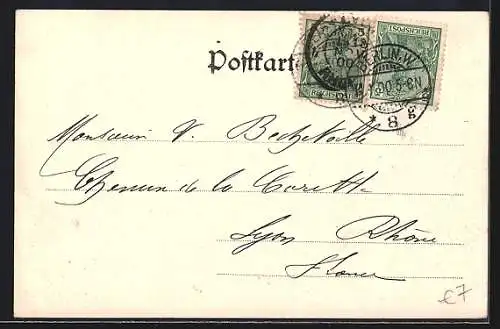 Postkarte
REICHSPOST
REICHSPOST
BERLIN.W.
00.5-6N
* 8 g
Monsieur V.
Chemin de la
Lyon Rhône
France
€7